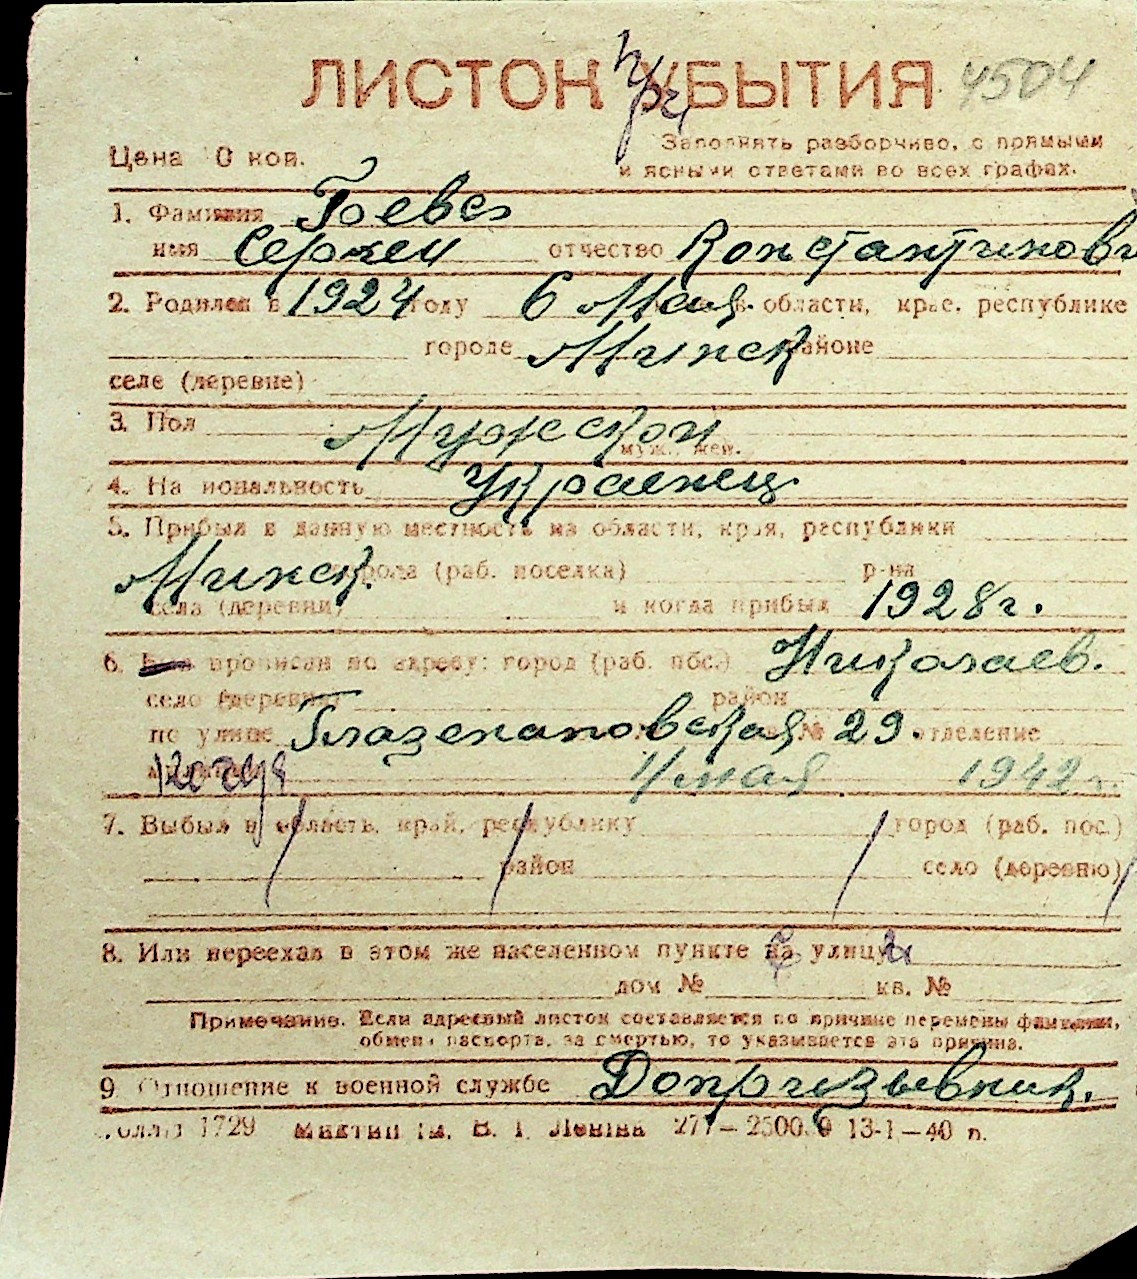 ЛИСТОК УБЫТИЯ 4504
Цена 10 коп.
Заполнять разборчиво, с прямыми
и ясными ответами во всех графах.
1. Фамилия Гоевез
имя Сергей отчество Константинови
2. Родился в 1924 году 6 Мая в области, крае, республике
городе Минск районе
селе (деревне)
3. Пол Мужской
муж., жен.
4. Национальность Украинец
5. Прибыл в данную местность из области, края, республики
Минск. города (раб. поселка) р-на
села (деревни) и когда прибыл 1928 г.
6. прописан по адресу: город (раб. пос.) Николаев.
село (деревня) район
по улице Глазенаповская № 29. отделение
когда 11 мая 1942 г.
7. Выбыл в область, край, республику город (раб. пос.)
район село (деревню)
8. Или переехал в этом же населенном пункте на улицу
дом № кв. №
Примечание. Если адресный листок составляется по причине перемены фамилии,
обмена паспорта, за смертью, то указывается эта причина.
9. Отношение к военной службе Допризывник.
1729 В. І. Леніна 277—2500.0 13-1—40 п.